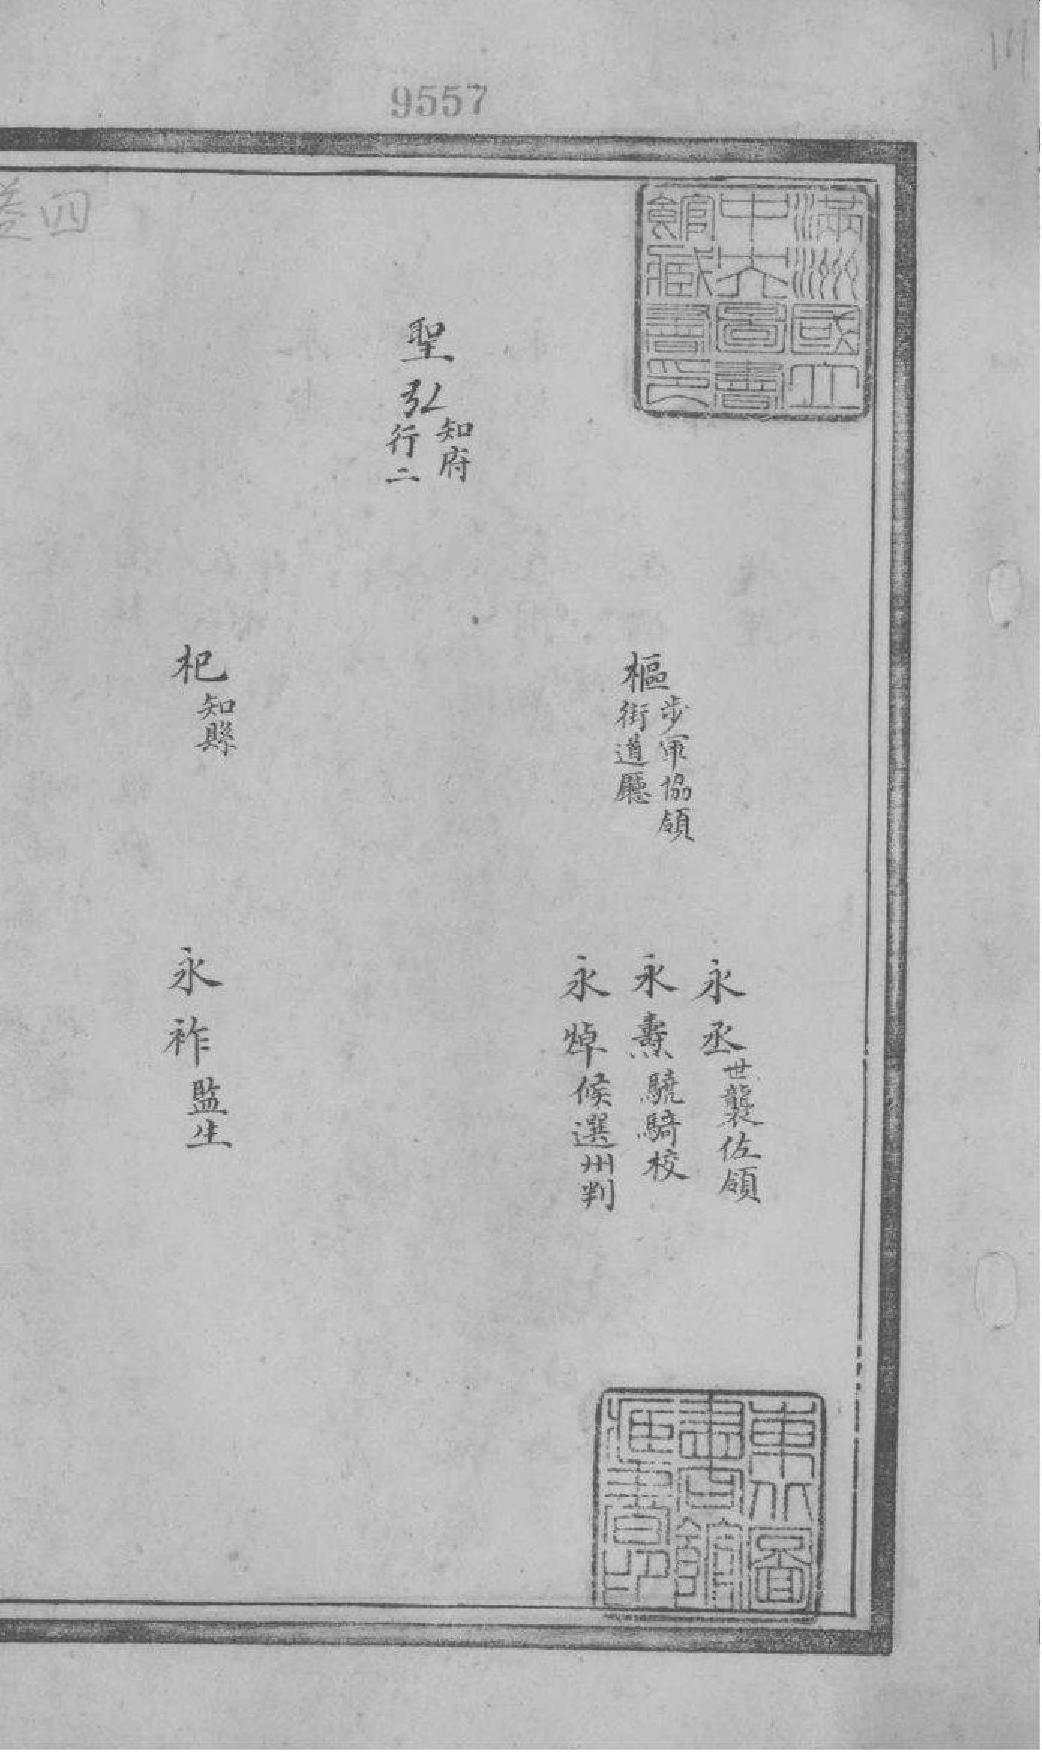 9557
滿洲國立
中央圖書
館藏書印
聖弘
知府
行二
樞
步軍協領
街道廳
永丞世襲佐領
永燾驍騎校
永焯候選州判
杞
知縣
永祚監生
卷四
東北圖
書館
藏書印